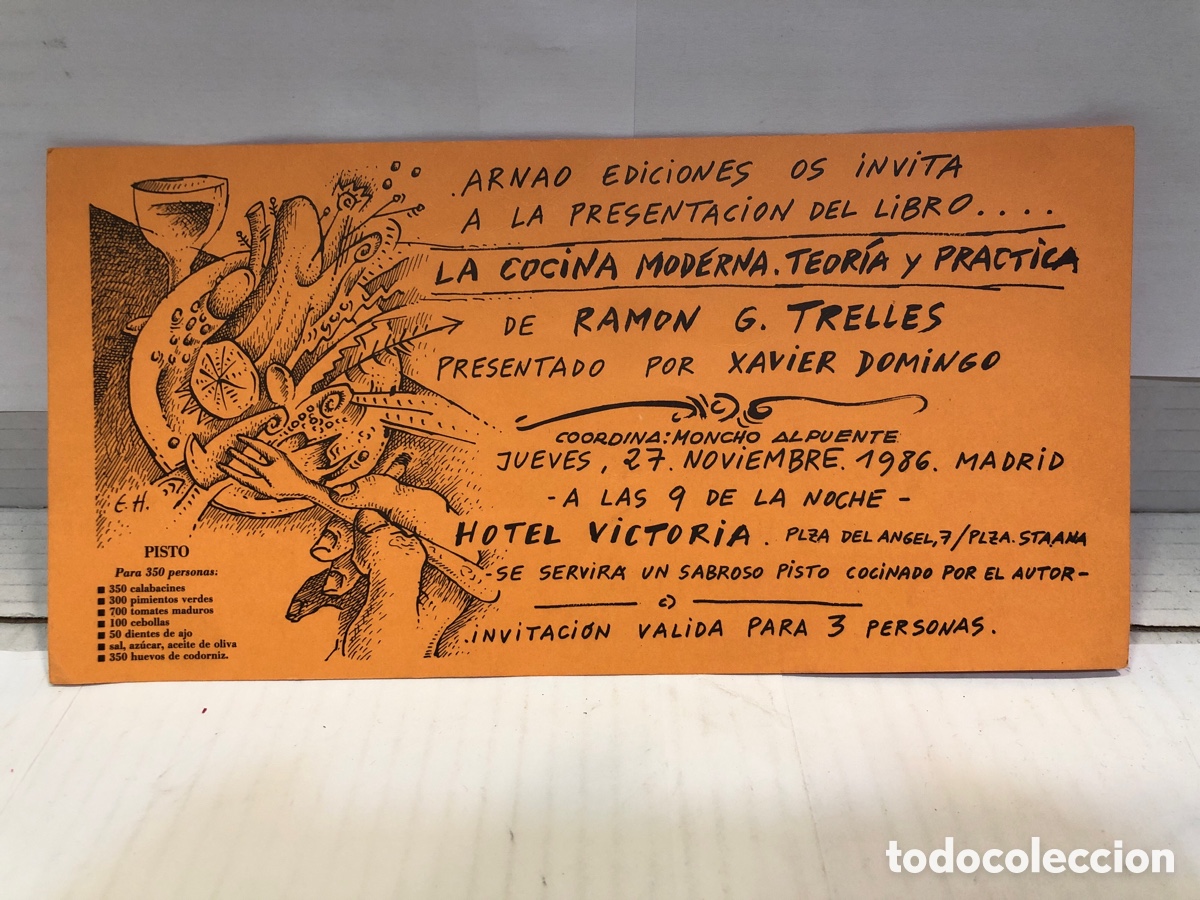 .ARNAO EDICIONES OS INVITA
A LA PRESENTACION DEL LIBRO....
LA COCINA MODERNA. TEORÍA Y PRACTICA
DE RAMON G. TRELLES
PRESENTADO POR XAVIER DOMINGO
COORDINA: MONCHO ALPUENTE
JUEVES, 27. NOVIEMBRE. 1986. MADRID
- A LAS 9 DE LA NOCHE -
HOTEL VICTORIA. PLZA DEL ANGEL, 7/PLZA. STA ANA
-SE SERVIRÁ UN SABROSO PISTO COCINADO POR EL AUTOR-
.INVITACIÓN VALIDA PARA 3 PERSONAS.
E.H.
PISTO
Para 350 personas:
■ 350 calabacines
■ 300 pimientos verdes
■ 700 tomates maduros
■ 100 cebollas
■ 50 dientes de ajo
■ sal, azúcar, aceite de oliva
■ 350 huevos de codorniz.
todocoleccion